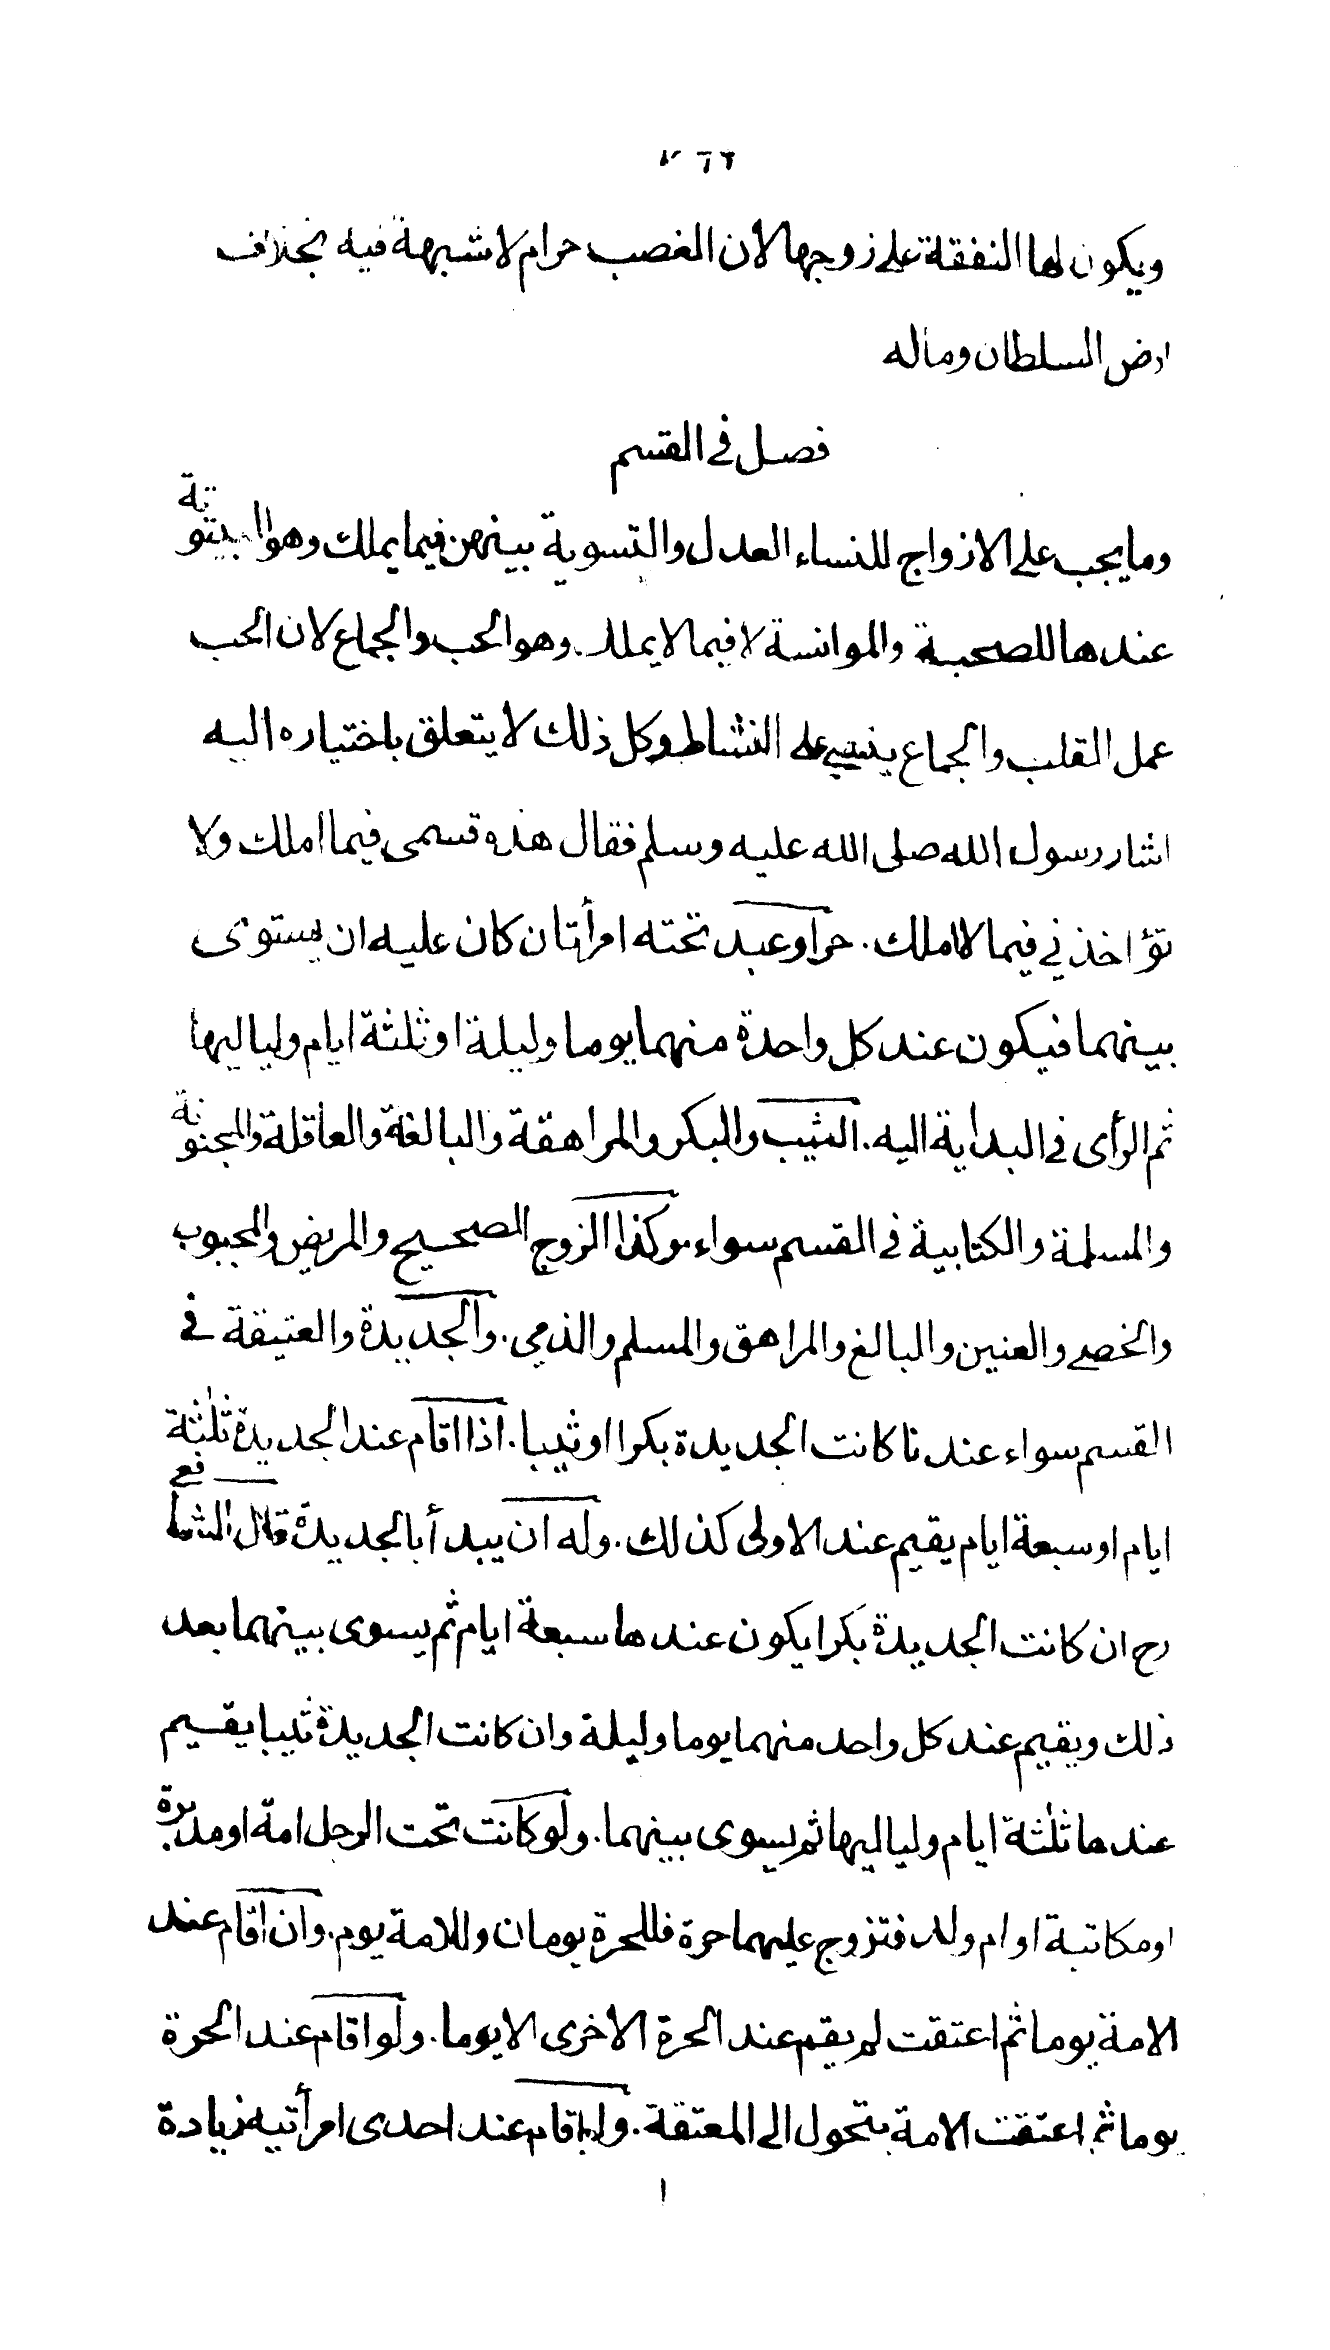 ويكون لها النفقة على زوجها لان الغصب حرام لا شبهة فيه بخلاف
ارض السلطان وماله
فصل في القسم
ومايجب على الازواج للنساء العدل والتسوية بينهن فيما يملك وهو البيتوتة
عندها للصحبة والموانسة لا فيما لا يملك وهو الحب والجماع لان الحب
عمل القلب والجماع ينبني على النشاط وكل ذلك لا يتعلق باختياره اليه
اشار رسول الله صلى الله عليه وسلم فقال هذه قسمى فيما املك ولا
تؤاخذني فيما لا املك. حر او عبد تحته امرأتان كان عليه ان يستوى
بينهما فيكون عند كل واحدة منهما يوما وليلة او ثلثة ايام ولياليها
ثم الرأى في البداية اليه. الثيب والبكر والمراهقة والبالغة والعاقلة والمجنونة
والمسلمة والكتابية في القسم سواء. وكذا الزوج الصحيح والمريض والمجبوب
والخصي والعنين والبالغ والمراهق والمسلم والذمي. والجديدة والعتيقة في
القسم سواء عندنا كانت الجديدة بكرا او ثيبا. اذا اقام عند الجديدة ثلثة
ايام او سبعة ايام يقيم عند الاولى كذلك. وله ان يبدأ بالجديدة قال الشافعي
رح ان كانت الجديدة بكرا يكون عندها سبعة ايام ثم يسوى بينهما بعد
ذلك ويقيم عند كل واحد منهما يوما وليلة وان كانت الجديدة ثيبا يقيم
عندها ثلثة ايام ولياليها ثم يسوى بينهما. ولو كانت تحت الرجل امة او مدبرة
او مكاتبة او ام ولد فتزوج عليهما حرة فللحرة يومان وللامة يوم. وان اقام عند
الامة يوما ثم اعتقت لم يقم عند الحرة الاخرى الا يوما. ولو اقام عند الحرة
يوما ثم اعتقت الامة يتحول الى المعتقة. اقام عند احدى امرأتيه زيادة